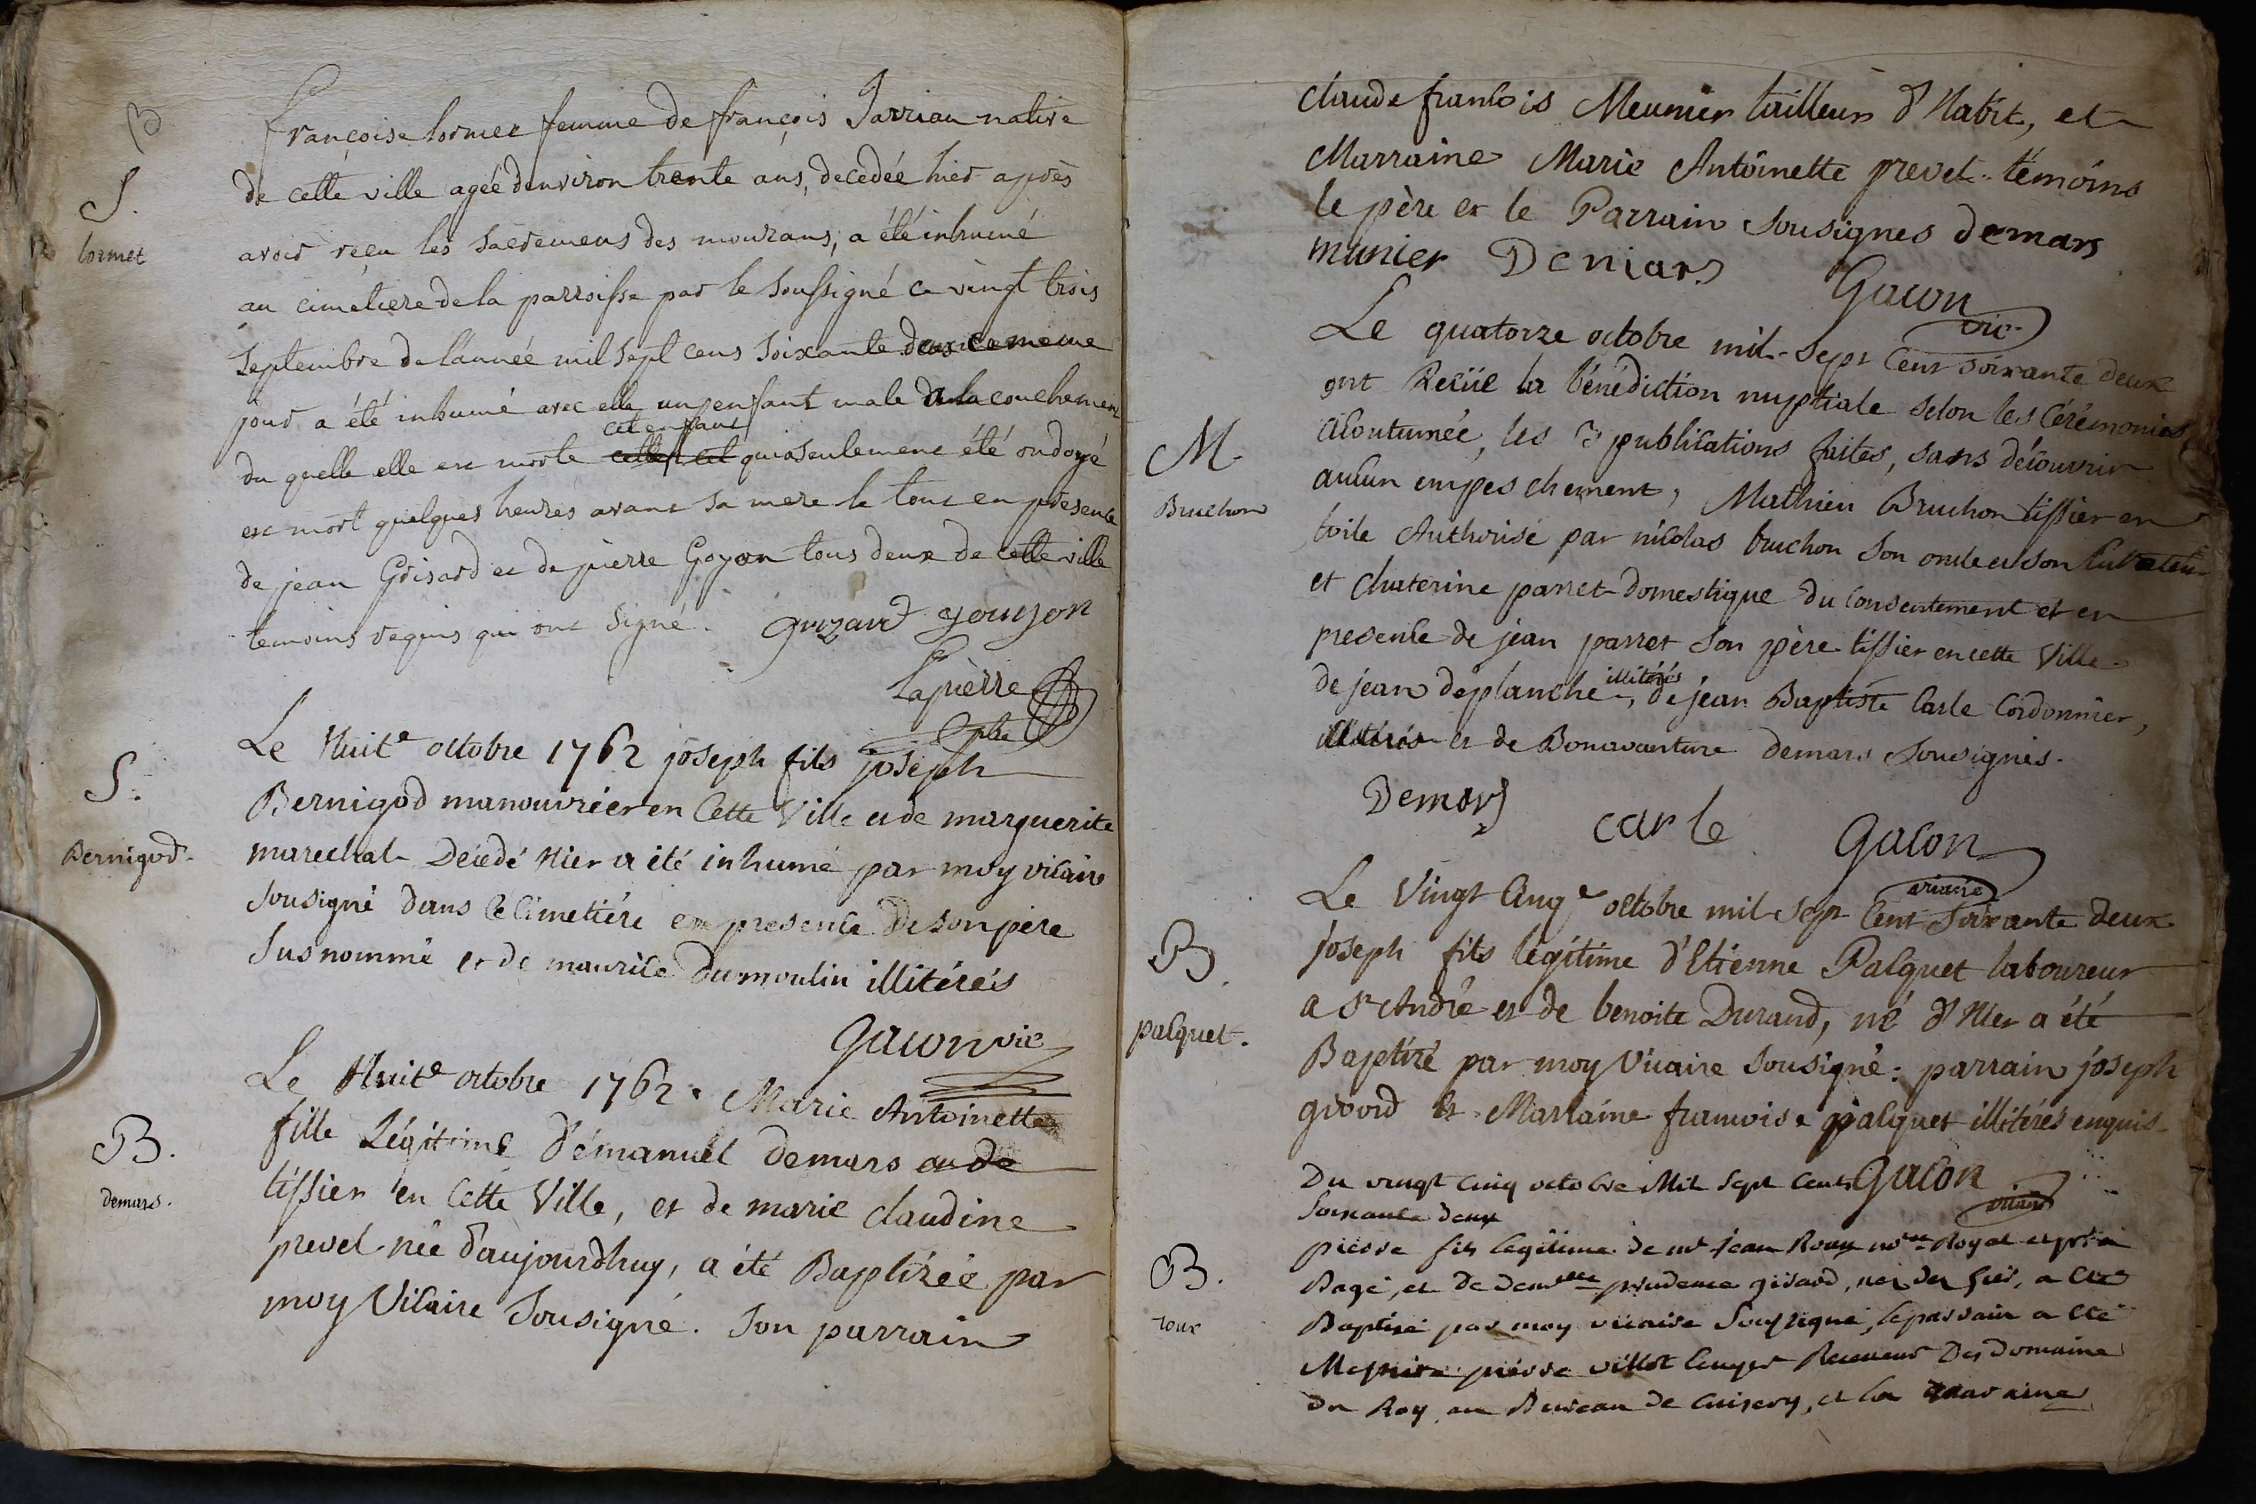 S.
lormet
françoise lormet femme de françois Jarrian native
de cette ville agée denviron trente ans, decedée hier apres
avoir reçu les sacremens des mourans, a été inhumé
au cimetiere de la parroisse par le soussigné ce vingt trois
septembre de lannée mil sept cens soixante deux ce meme
jour a été inhumé avec elle un enfant male de la couchement
cet enfant
du quelle elle est morte qui a seulement été ondoyé
est mort quelques heures avant sa mere le tout en presence
de jean Grisard et de pierre Goyon tous deux de cette ville
temoins requis qui ont signé. grizard goujon
Lapierre
S.
Bernigod.
Le Huite octobre 1762 joseph fils joseph
Bernigod manouvrier en Cette Ville et de marguerite
marechal Décedé Hier a été inhumé par moy vicaire
sousigné dans le Cimetiére en presence de son père
susnommé et de maurice Dumoulin illitérés
Gacon vic
B.
demars.
Le Huite octobre 1762. Marie Antoinette
fille Légitime d'émanuel demars
tissier en Cette Ville, et de marie claudine
prevel née d'aujourdhuy, a été Baptizée par
moy Vicaire Sousigné. Son parrain
claude francois Meunier tailleur d'Habit, et
Marraine Marie Antoinette prevel. témoins
le père et le Parrain sousignes demars
munier Demars Gacon
vic
M.
Bruchon
Le quatorze octobre mil-sept Cent soixante deux
ont Recüe la bénédiction nuptiale selon les Cérémonies
acoutumée, les 3 publications faites, sans découvrir
aucun empeschement, Mathieu Bruchon tissier en
toile Authorisé par nicolas bruchon son oncle et son Curateur
et Chaterine parret domestique du consentement et en
presence de jean parret son père tissier en cette Ville
illitérés
de jean déplanche, de jean Baptiste Carle Cordonnier,
et de Bonavanture demars Sousignés.
Demars Carle Gacon
vicaire
B.
palquet.
Le Vingt Cinqe octobre mil sept Cent Soixante deux
joseph fils légitime d'Etienne Palquet laboureur
a St André et de benoite Durand, né d'Hier a été
Baptizé par moy Vicaire Sousigné: parrain joseph
givord et Marraine francoise palquet illitérés enquis
Gacon
vicaire
B.
roux
Du vingt cinq octobre Mil sept cents
soixante deux
pierre fils legitime de mr jean Roux nore Royal et pr a
Bagé, et de demlle prudence girard, né hier, a été
Baptisé par moy vicaire soussigné, le parrain a été
Messire pierre villot Receveur Des Domaine
du Roy au Bureau de Cuisery, et la maraine